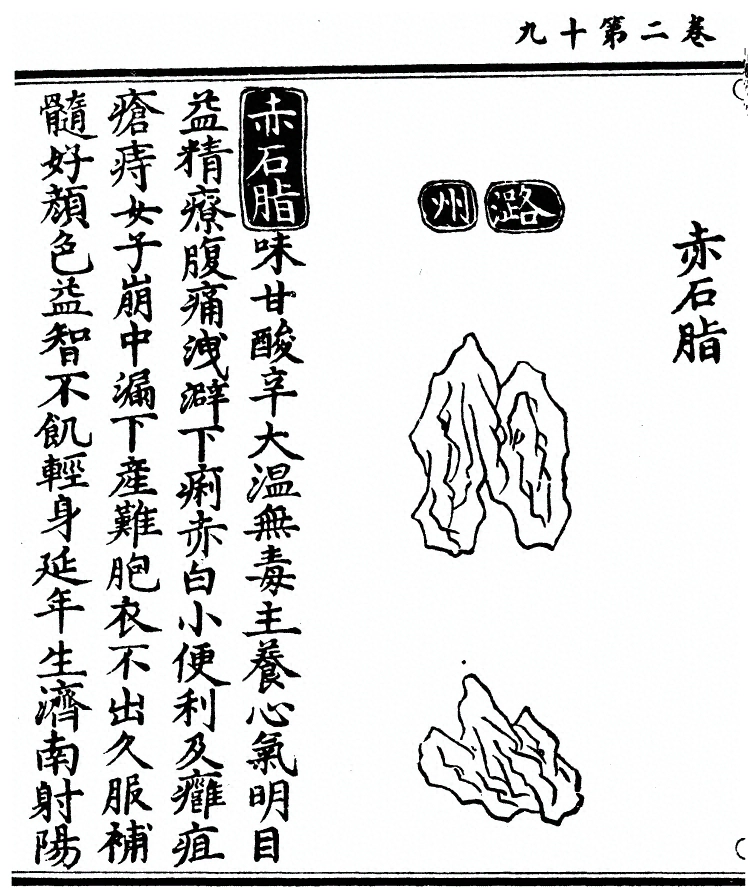 卷二第十九
赤石脂
潞州
赤石脂味甘酸辛大温無毒主養心氣明目
益精療腹痛洩澼下痢赤白小便利及癰疽
瘡痔女子崩中漏下產難胞衣不出久服補
髓好顔色益智不飢輕身延年生濟南射陽